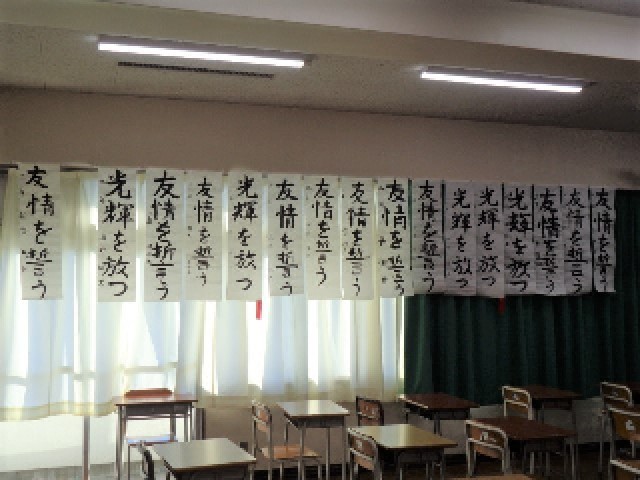 友情を誓う
友情を誓う
友情を誓う
光輝を放つ
光輝を放つ
光輝を放つ
友情を誓う
友情を誓う
友情を誓う
友情を誓う
友情を誓う
光輝を放つ
友情を誓う
友情を誓う
光輝を放つ
友情を誓う